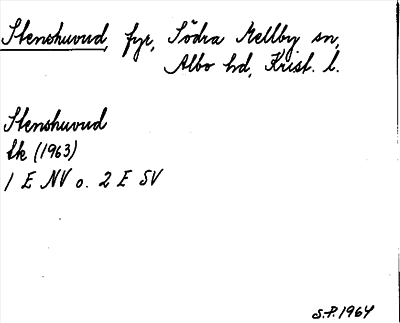 Stenshuvud, fyr, Södra Mellby sn,
Albo hd, Krist. l.
Stenshuvud
Ek (1963)
1 E NV o. 2 E SV
S.P. 1964